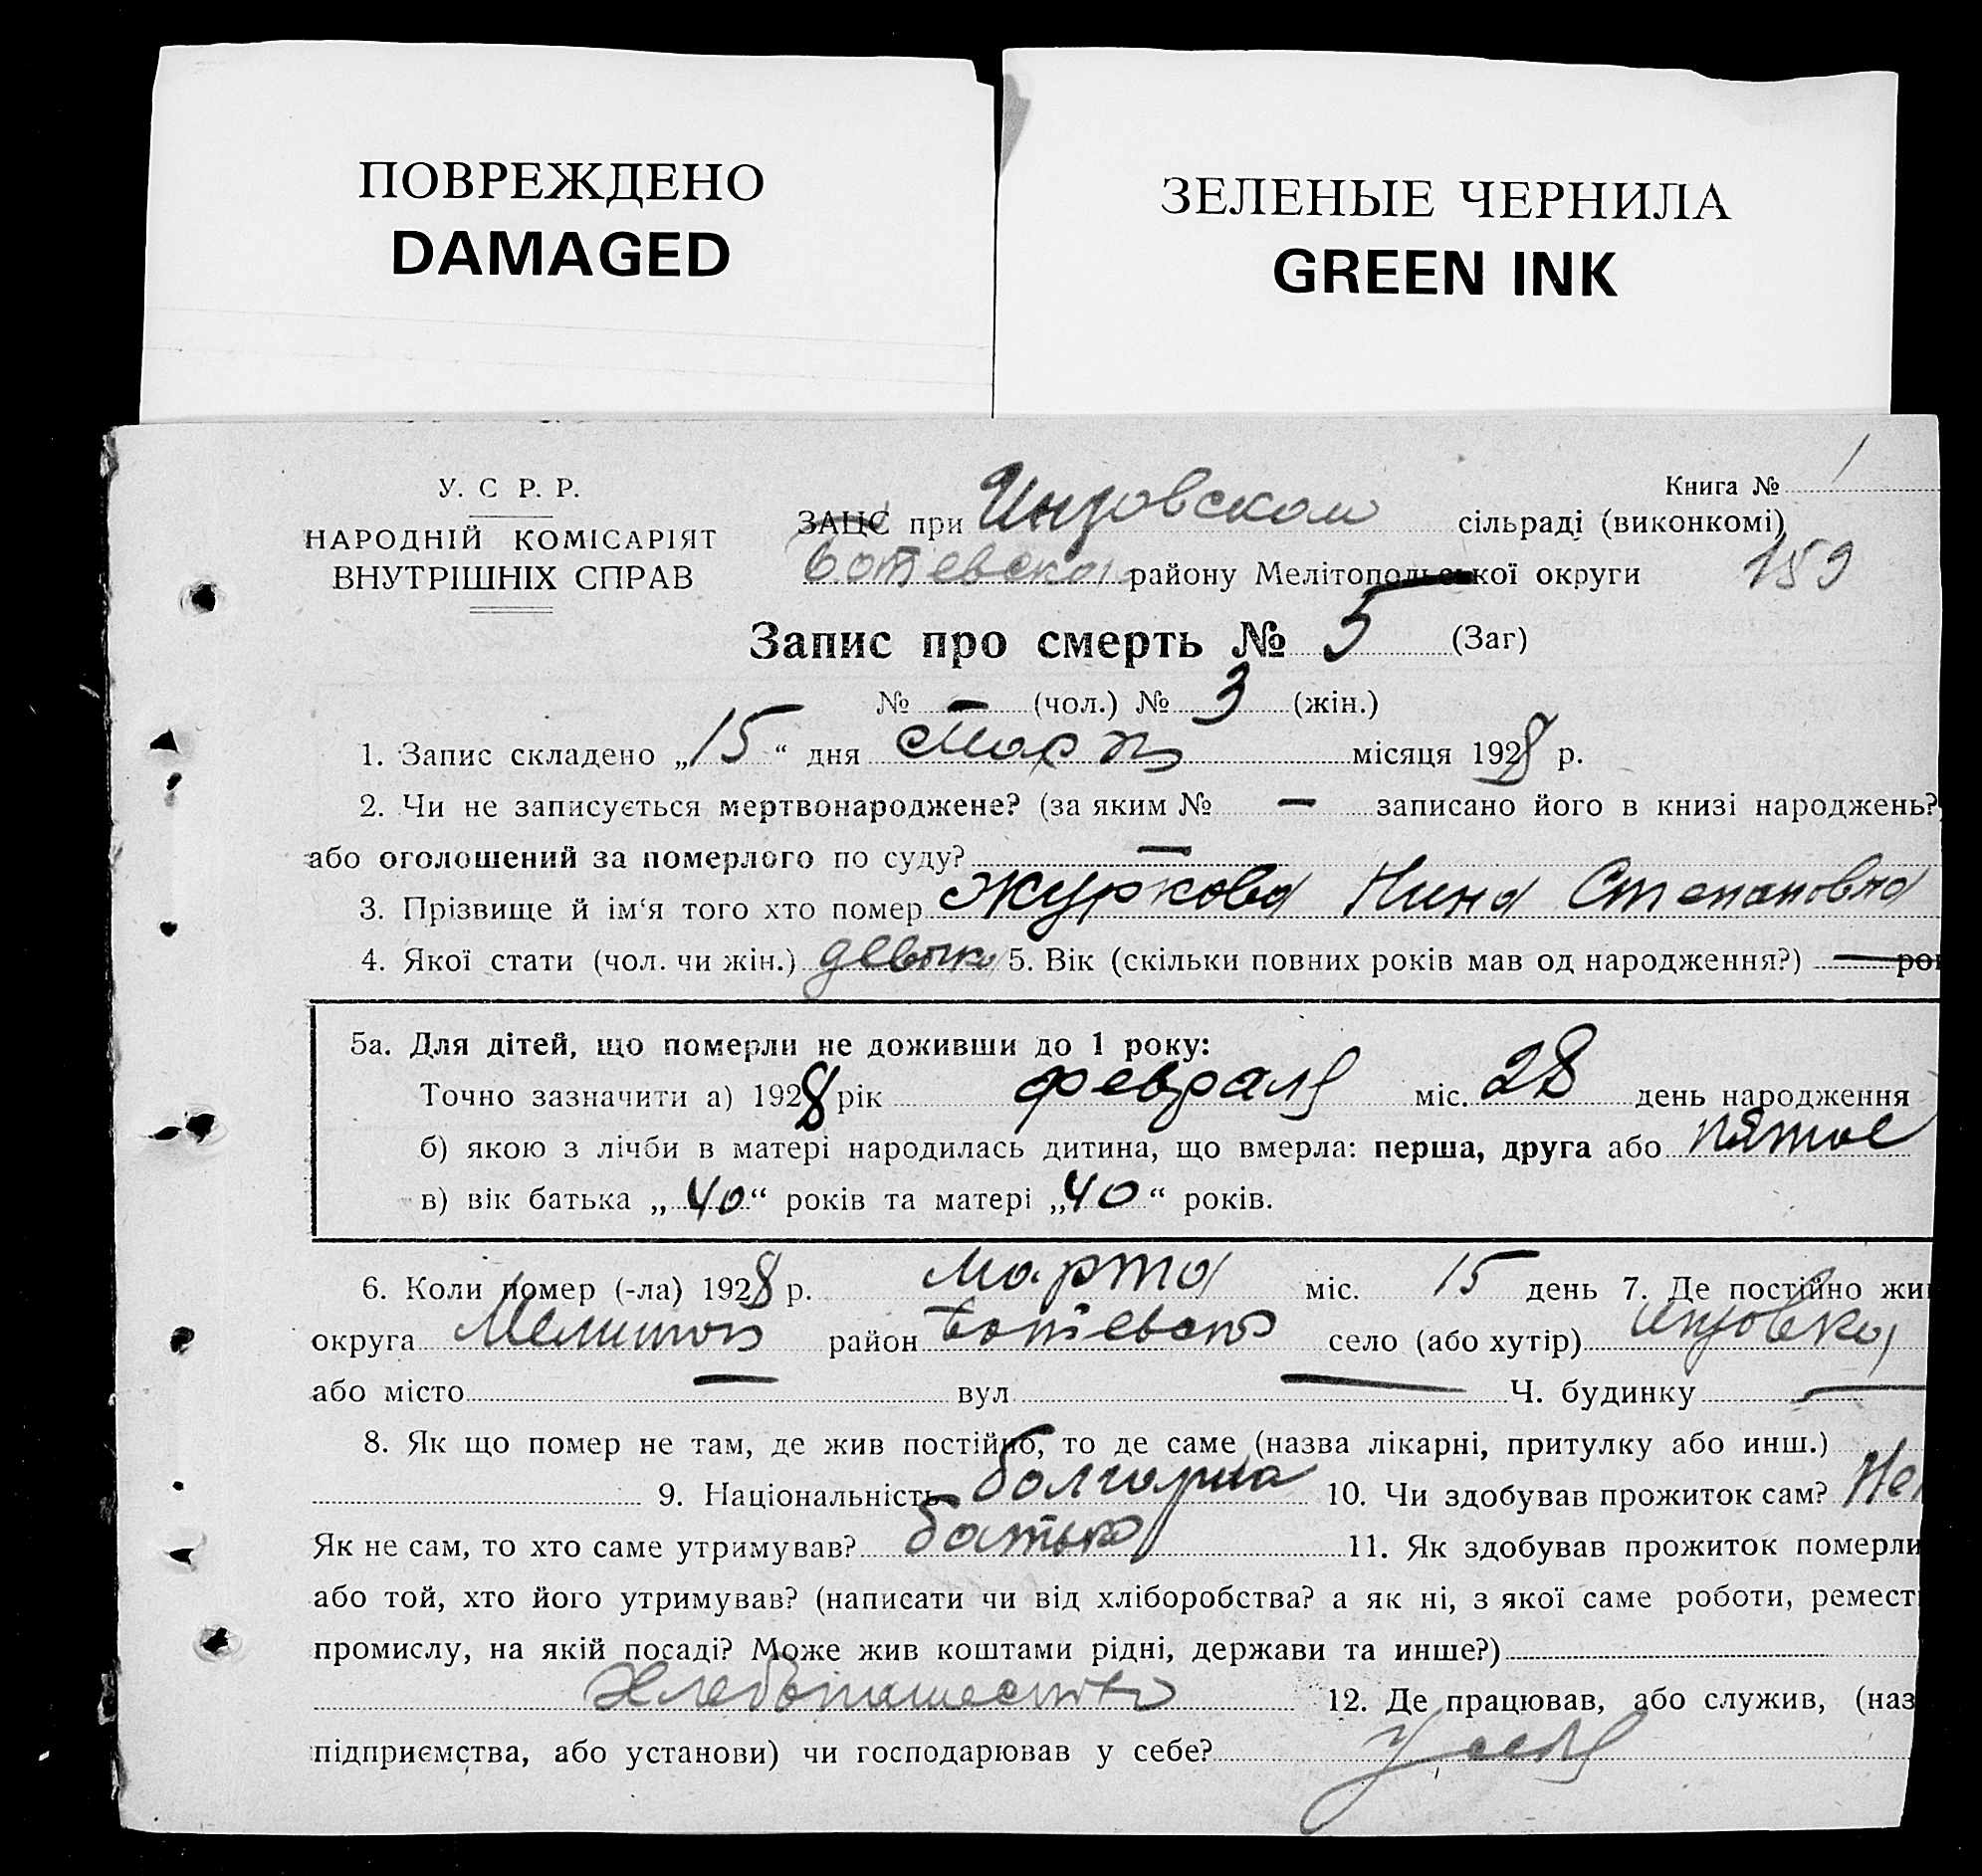 ПОВРЕЖДЕНО
DAMAGED
ЗЕЛЕНЫЕ ЧЕРНИЛА
GREEN INK
У. С Р. Р.
НАРОДНІЙ КОМІСАРІЯТ
ВНУТРІШНІХ СПРАВ
Книга № 1
ЗАЦС при Инзовском сільраді (виконкомі)
Ботевского району Мелітопольської округи 159
Запис про смерть № 5 (Заг)
№ — (чол.) № 3 (жін.)
1. Запис складено „15“ дня март місяця 1928 р.
2. Чи не записується мертвонароджене? (за яким № — записано його в книзі народжень?
або оголошений за померлого по суду? —
3. Прізвище й ім‘я того хто помер Журкова Нина Степановна
4. Якої стати (чол. чи жін.) 5. Вік (скільки повних років мав од народження?) — ро
5а. Для дітей, що померли не доживши до 1 року:
Точно зазначити а) 1928 рік февраля міс. 28 день народження
б) якою з лічби в матері народилась дитина, що вмерла: перша, друга або пятое
в) вік батька „40“ років та матері „40“ років.
6. Коли помер (-ла) 1928 р. марта міс. 15 день 7. Де постійно жи
округа Мелитоп район Ботевск село (або хутір) Инзовка
або місто — вул — Ч. будинку —
8. Як що помер не там, де жив постійно, то де саме (назва лікарні, притулку або инш.)
9. Національність болгарка 10. Чи здобував прожиток сам? Не
Як не сам, то хто саме утримував? батько 11. Як здобував прожиток померли
або той, хто його утримував? (написати чи від хліборобства? а як ні, з якої саме роботи, ремест
промислу, на якій посаді? Може жив коштами рідні, держави та инше?)
Хлебопашество 12. Де працював, або служив, (наз
підприємства, або установи) чи господарював у себе? У себя